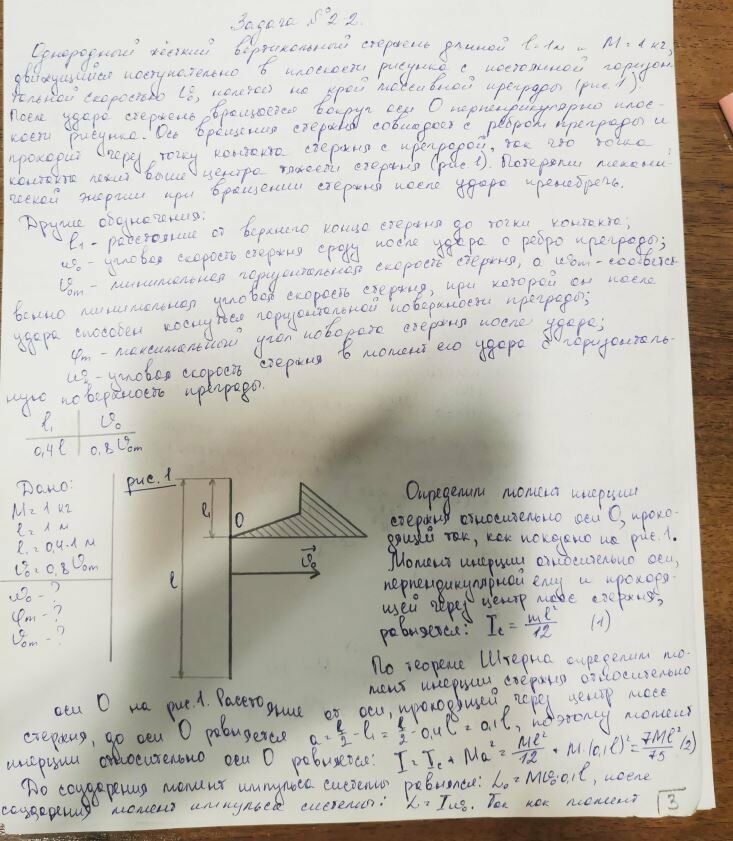 Задача №2-2.
Однородный жёсткий вертикальный стержень длиной l=1м и M=1 кг,
движущийся поступательно в плоскости рисунка с постоянной горизон
тальной скоростью υ₀, налетает на край массивной преграды (рис.1)
После удара стержень вращается вокруг оси О перпендикулярно плос-
кости рисунка. Ось вращения стержня совпадает с ребром преграды и
проходит через точку контакта стержня с преградой, так что точка
контакта лежит выше центра тяжести стержня (рис.1). Потерями механи-
ческой энергии при вращении стержня после удара пренебречь.
Другие обозначения:
l₁ - расстояние от верхнего конца стержня до точки контакта;
ω₀ - угловая скорость стержня сразу после удара о ребро преграды;
υ₀m - минимальная горизонтальная скорость стержня, а ω₀m - соответст
венно минимальная угловая скорость стержня, при которой он после
удара способен коснуться горизонтальной поверхности преграды;
φm - максимальный угол поворота стержня после удара;
- угловая скорость стержня в момент его удара о горизонталь-
ную поверхность преграды.
l₁ υ₀
0,4l 0,8 υ₀m
Дано:
M=1 кг
l=1 м
l₁=0,4·1 м
υ₀=0,8υ₀m
ω₀ - ?
φm - ?
υ₀m - ?
рис.1
l₁
О
l
υ₀
Определим момент инерции
стержня относительно оси О, прохо-
дящей так, как показано на рис.1.
Момент инерции относительно оси,
перпендикулярной ему и проходя-
щей через центр масс стержня,
равняется: I_c = ml²/12 (1)
По теореме Штерна определим мо-
мент инерции стержня относительно
оси О на рис.1. Расстояние от оси, проходящей через центр масс
стержня, до оси О равняется a = l/2 - l₁ = l/2 - 0,4l = 0,1l, поэтому момент
инерции относительно оси О равняется: I = I_c + Ma² = Ml²/12 + M·(0,1l)² = 7Ml²/75 (2)
До соударения момент импульса системы равнялся: L₀ = Mυ₀·0,1l, после
соударения момент импульса системы: L = Iω₀. Так как момент
3